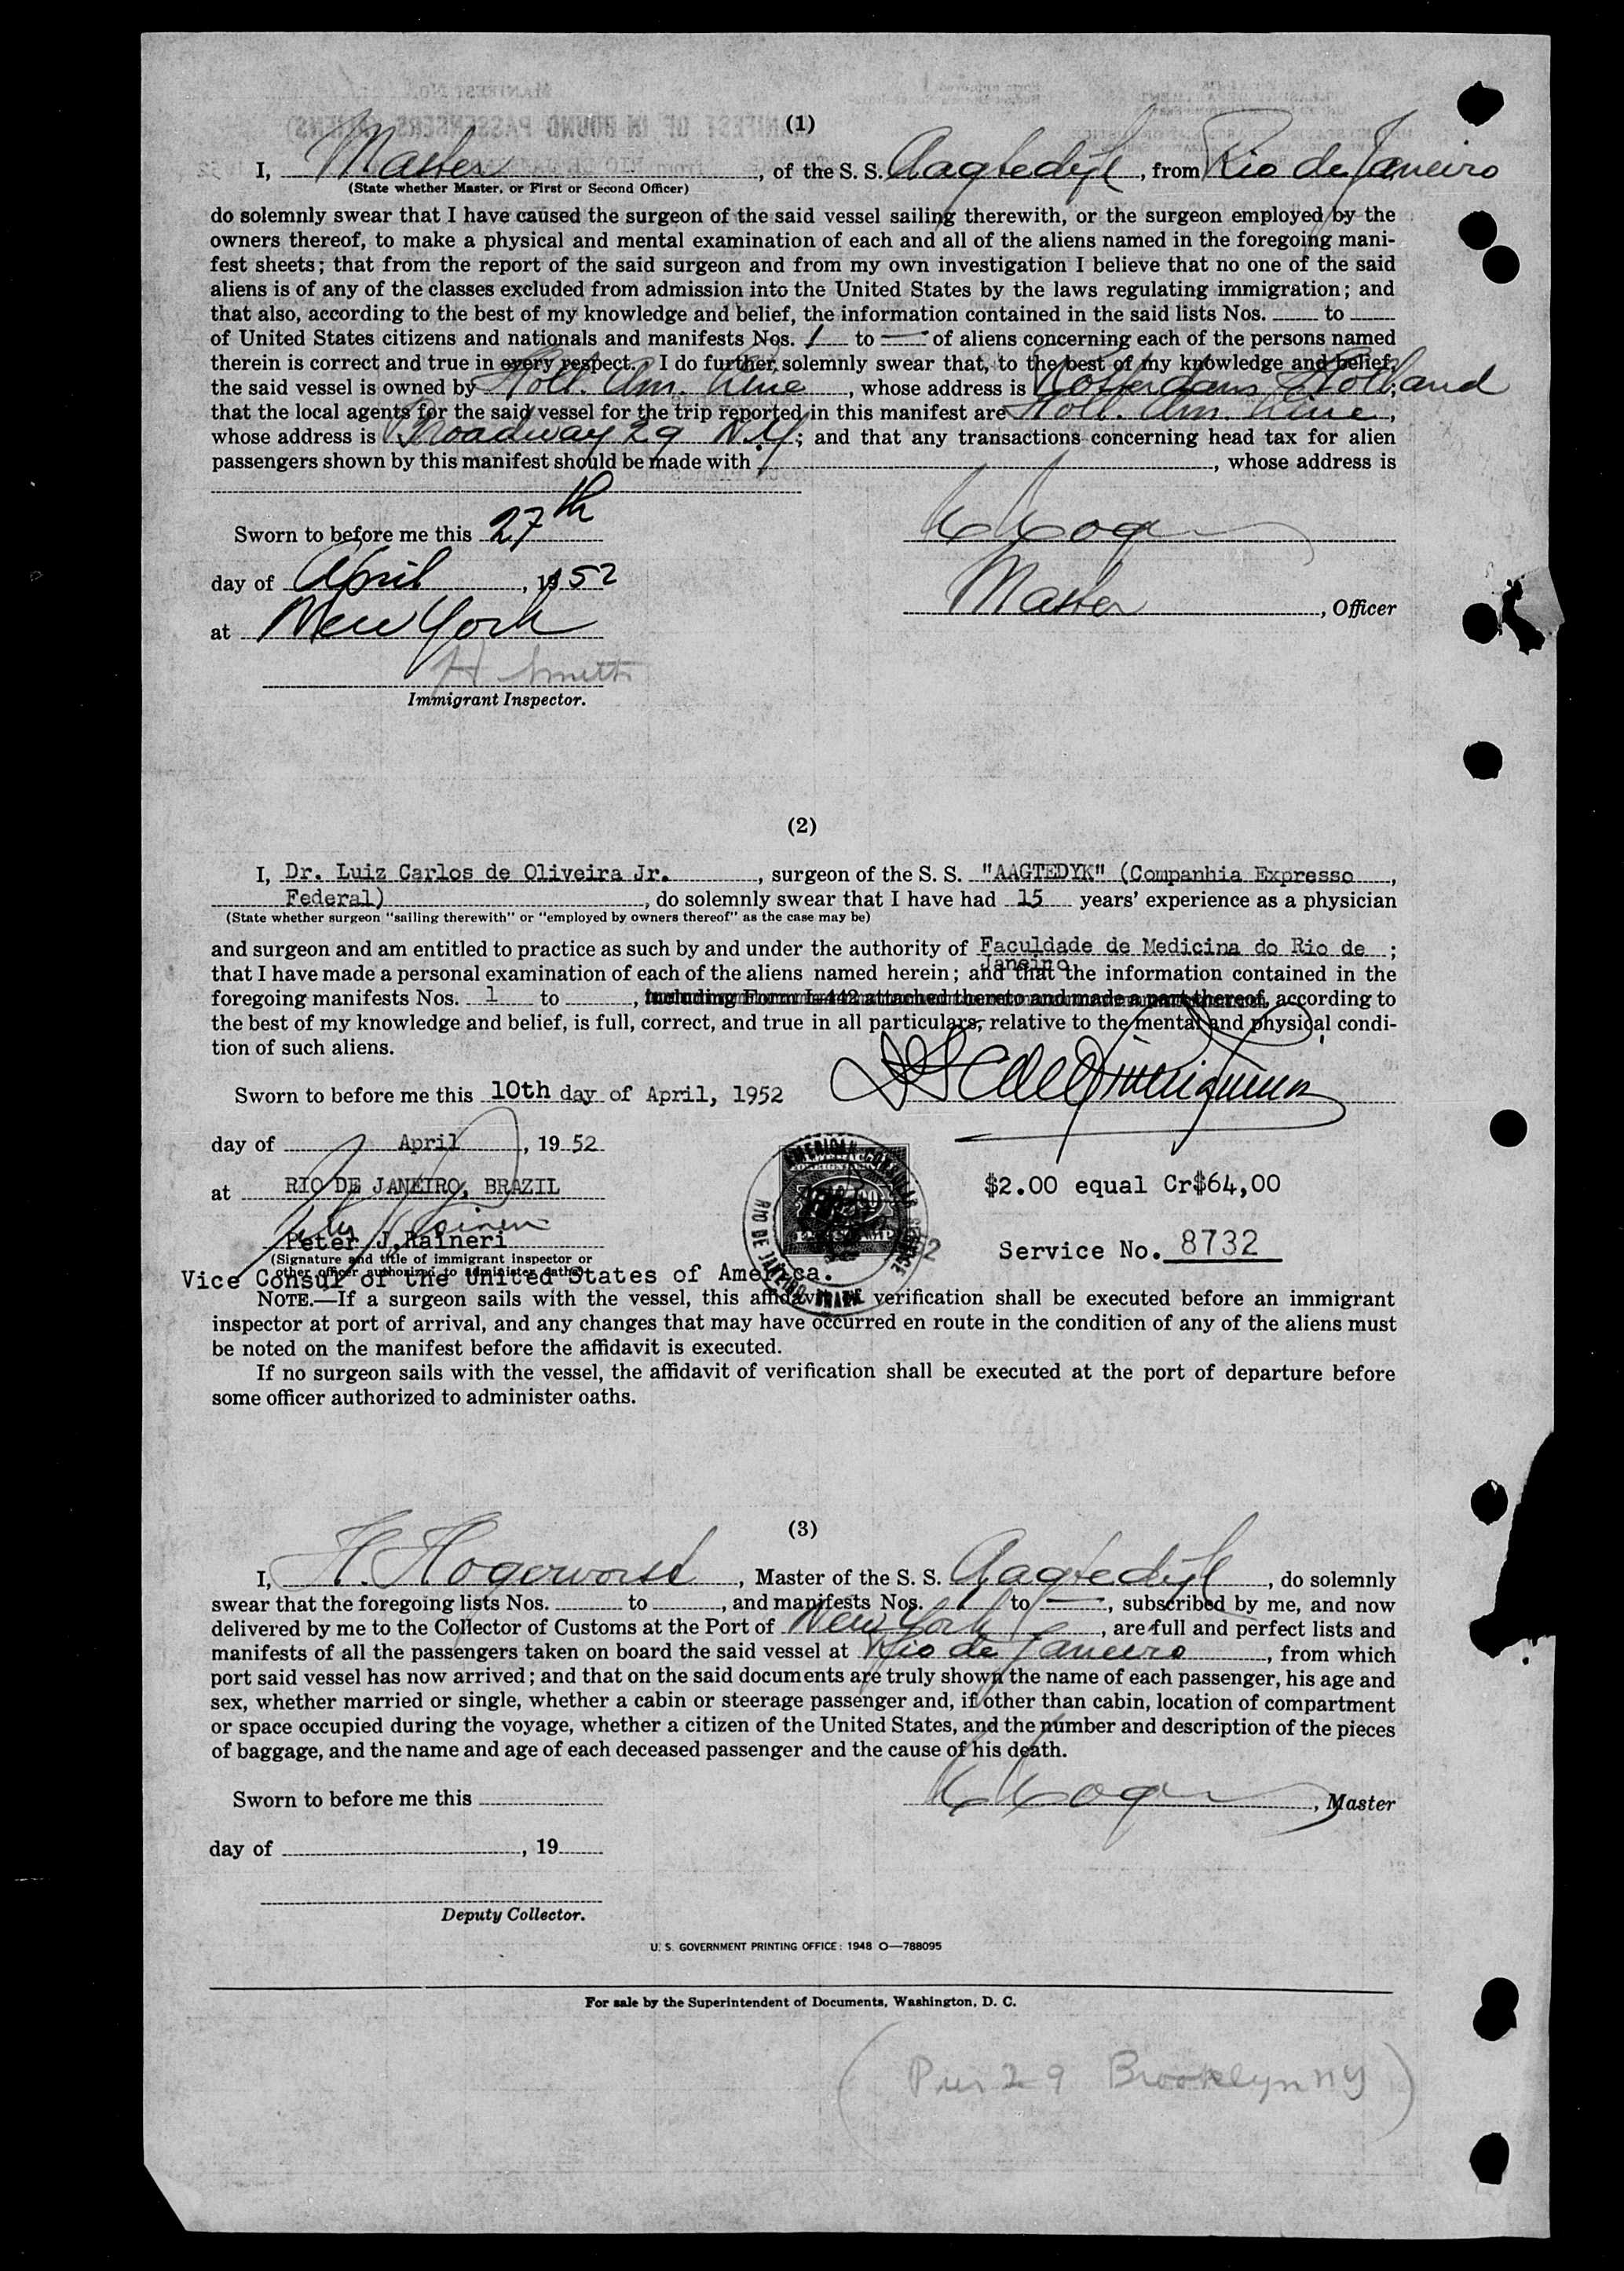 (1)
I, Master, of the S. S. Aagtedyk, from Rio de Janeiro
(State whether Master, or First or Second Officer)
do solemnly swear that I have caused the surgeon of the said vessel sailing therewith, or the surgeon employed by the
owners thereof, to make a physical and mental examination of each and all of the aliens named in the foregoing mani-
fest sheets; that from the report of the said surgeon and from my own investigation I believe that no one of the said
aliens is of any of the classes excluded from admission into the United States by the laws regulating immigration; and
that also, according to the best of my knowledge and belief, the information contained in the said lists Nos. to
of United States citizens and nationals and manifests Nos. 1 to — of aliens concerning each of the persons named
therein is correct and true in every respect. I do further solemnly swear that, to the best of my knowledge and belief,
the said vessel is owned by Holl. Am. Line, whose address is Rotterdam Holland;
that the local agents for the said vessel for the trip reported in this manifest are Holl. Am. Line,
whose address is Broadway 29 N.Y.; and that any transactions concerning head tax for alien
passengers shown by this manifest should be made with , whose address is
Sworn to before me this 27th
day of April, 1952
at New York
Master, Officer
H Smith
Immigrant Inspector.
(2)
I, Dr. Luiz Carlos de Oliveira Jr. , surgeon of the S. S. "AAGTEDYK" (Companhia Expresso ,
Federal) , do solemnly swear that I have had 15 years' experience as a physician
(State whether surgeon "sailing therewith" or "employed by owners thereof" as the case may be)
and surgeon and am entitled to practice as such by and under the authority of Faculdade de Medicina do Rio de ;
Janeiro
that I have made a personal examination of each of the aliens named herein; and that the information contained in the
foregoing manifests Nos. 1 to , including Form I-442 attached thereto and made a part thereof, according to
the best of my knowledge and belief, is full, correct, and true in all particulars, relative to the mental and physical condi-
tion of such aliens.
Sworn to before me this 10th day of April, 1952
day of April , 19 52
at RIO DE JANEIRO, BRAZIL
$2.00 equal Cr$64,00
Peter J.Raineri
Service No. 8732
(Signature and title of immigrant inspector or
other officer authorized to administer oaths)
Vice Consul of the United States of America.
NOTE.—If a surgeon sails with the vessel, this affidavit of verification shall be executed before an immigrant
inspector at port of arrival, and any changes that may have occurred en route in the condition of any of the aliens must
be noted on the manifest before the affidavit is executed.
If no surgeon sails with the vessel, the affidavit of verification shall be executed at the port of departure before
some officer authorized to administer oaths.
(3)
I, H. Hogervorst , Master of the S. S. Aagtedyk , do solemnly
swear that the foregoing lists Nos. to , and manifests Nos. 1 to — , subscribed by me, and now
delivered by me to the Collector of Customs at the Port of New York , are full and perfect lists and
manifests of all the passengers taken on board the said vessel at Rio de Janeiro , from which
port said vessel has now arrived; and that on the said documents are truly shown the name of each passenger, his age and
sex, whether married or single, whether a cabin or steerage passenger and, if other than cabin, location of compartment
or space occupied during the voyage, whether a citizen of the United States, and the number and description of the pieces
of baggage, and the name and age of each deceased passenger and the cause of his death.
Sworn to before me this
, Master
day of , 19
Deputy Collector.
U. S. GOVERNMENT PRINTING OFFICE : 1948 O—788095
For sale by the Superintendent of Documents, Washington, D. C.
(Pier 29 Brooklyn NY)